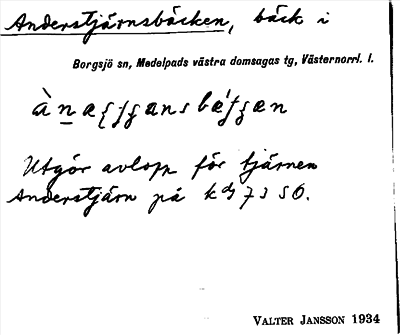 Anderstjärnsbäcken, bäck i
Borgsjö sn, Medelpads västra domsagas tg, Västernorrl. l.
Utgör avlopp för tjärnen
Anderstjärn på
VALTER JANSSON 1934